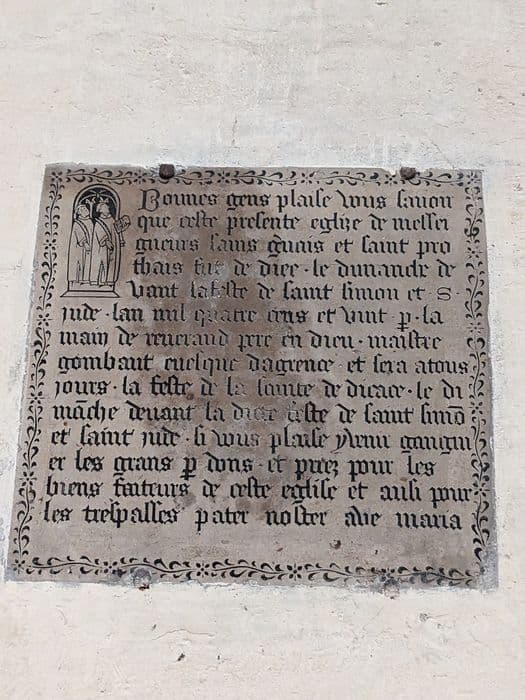 Bonnes gens plaise vous savoir
que ceste presente eglize de messei
gneurs sains gvais et saint pro
thais fut dediee · le dimanche de
vant la feste de saint simon et · s ·
jude · lan mil quatre cens et vint · p · la
main de reverand pere en dieu · maistre
gombaut evesque dagrence · et sera atous
jours · la feste de la sainte dedicace · le di
mache devant la dicte feste de saint simo
et saint jude · si vous plaise y venir gaigni
er les grans pdons · et preez pour les
biens faiteurs de ceste eglise et ausi pour
les trespasses pater noster ave maria